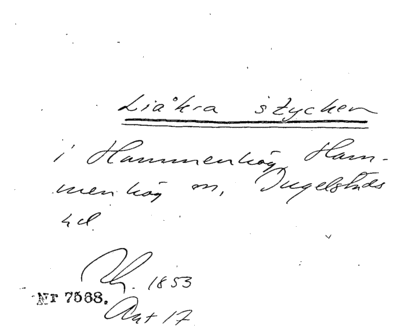 Liåkra stycken
i Hammenhög Ham-
menhög sn, Ingelstads
hd.
1853
Nr 7568. Akt 17